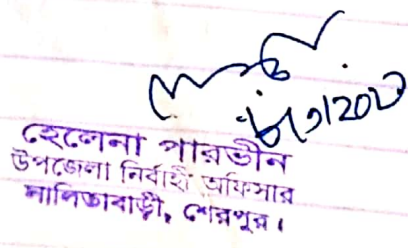 হেলেনা পারভীন
উপজেলা নির্বাহী অফিসার
নালিতাবাড়ী, শেরপুর।